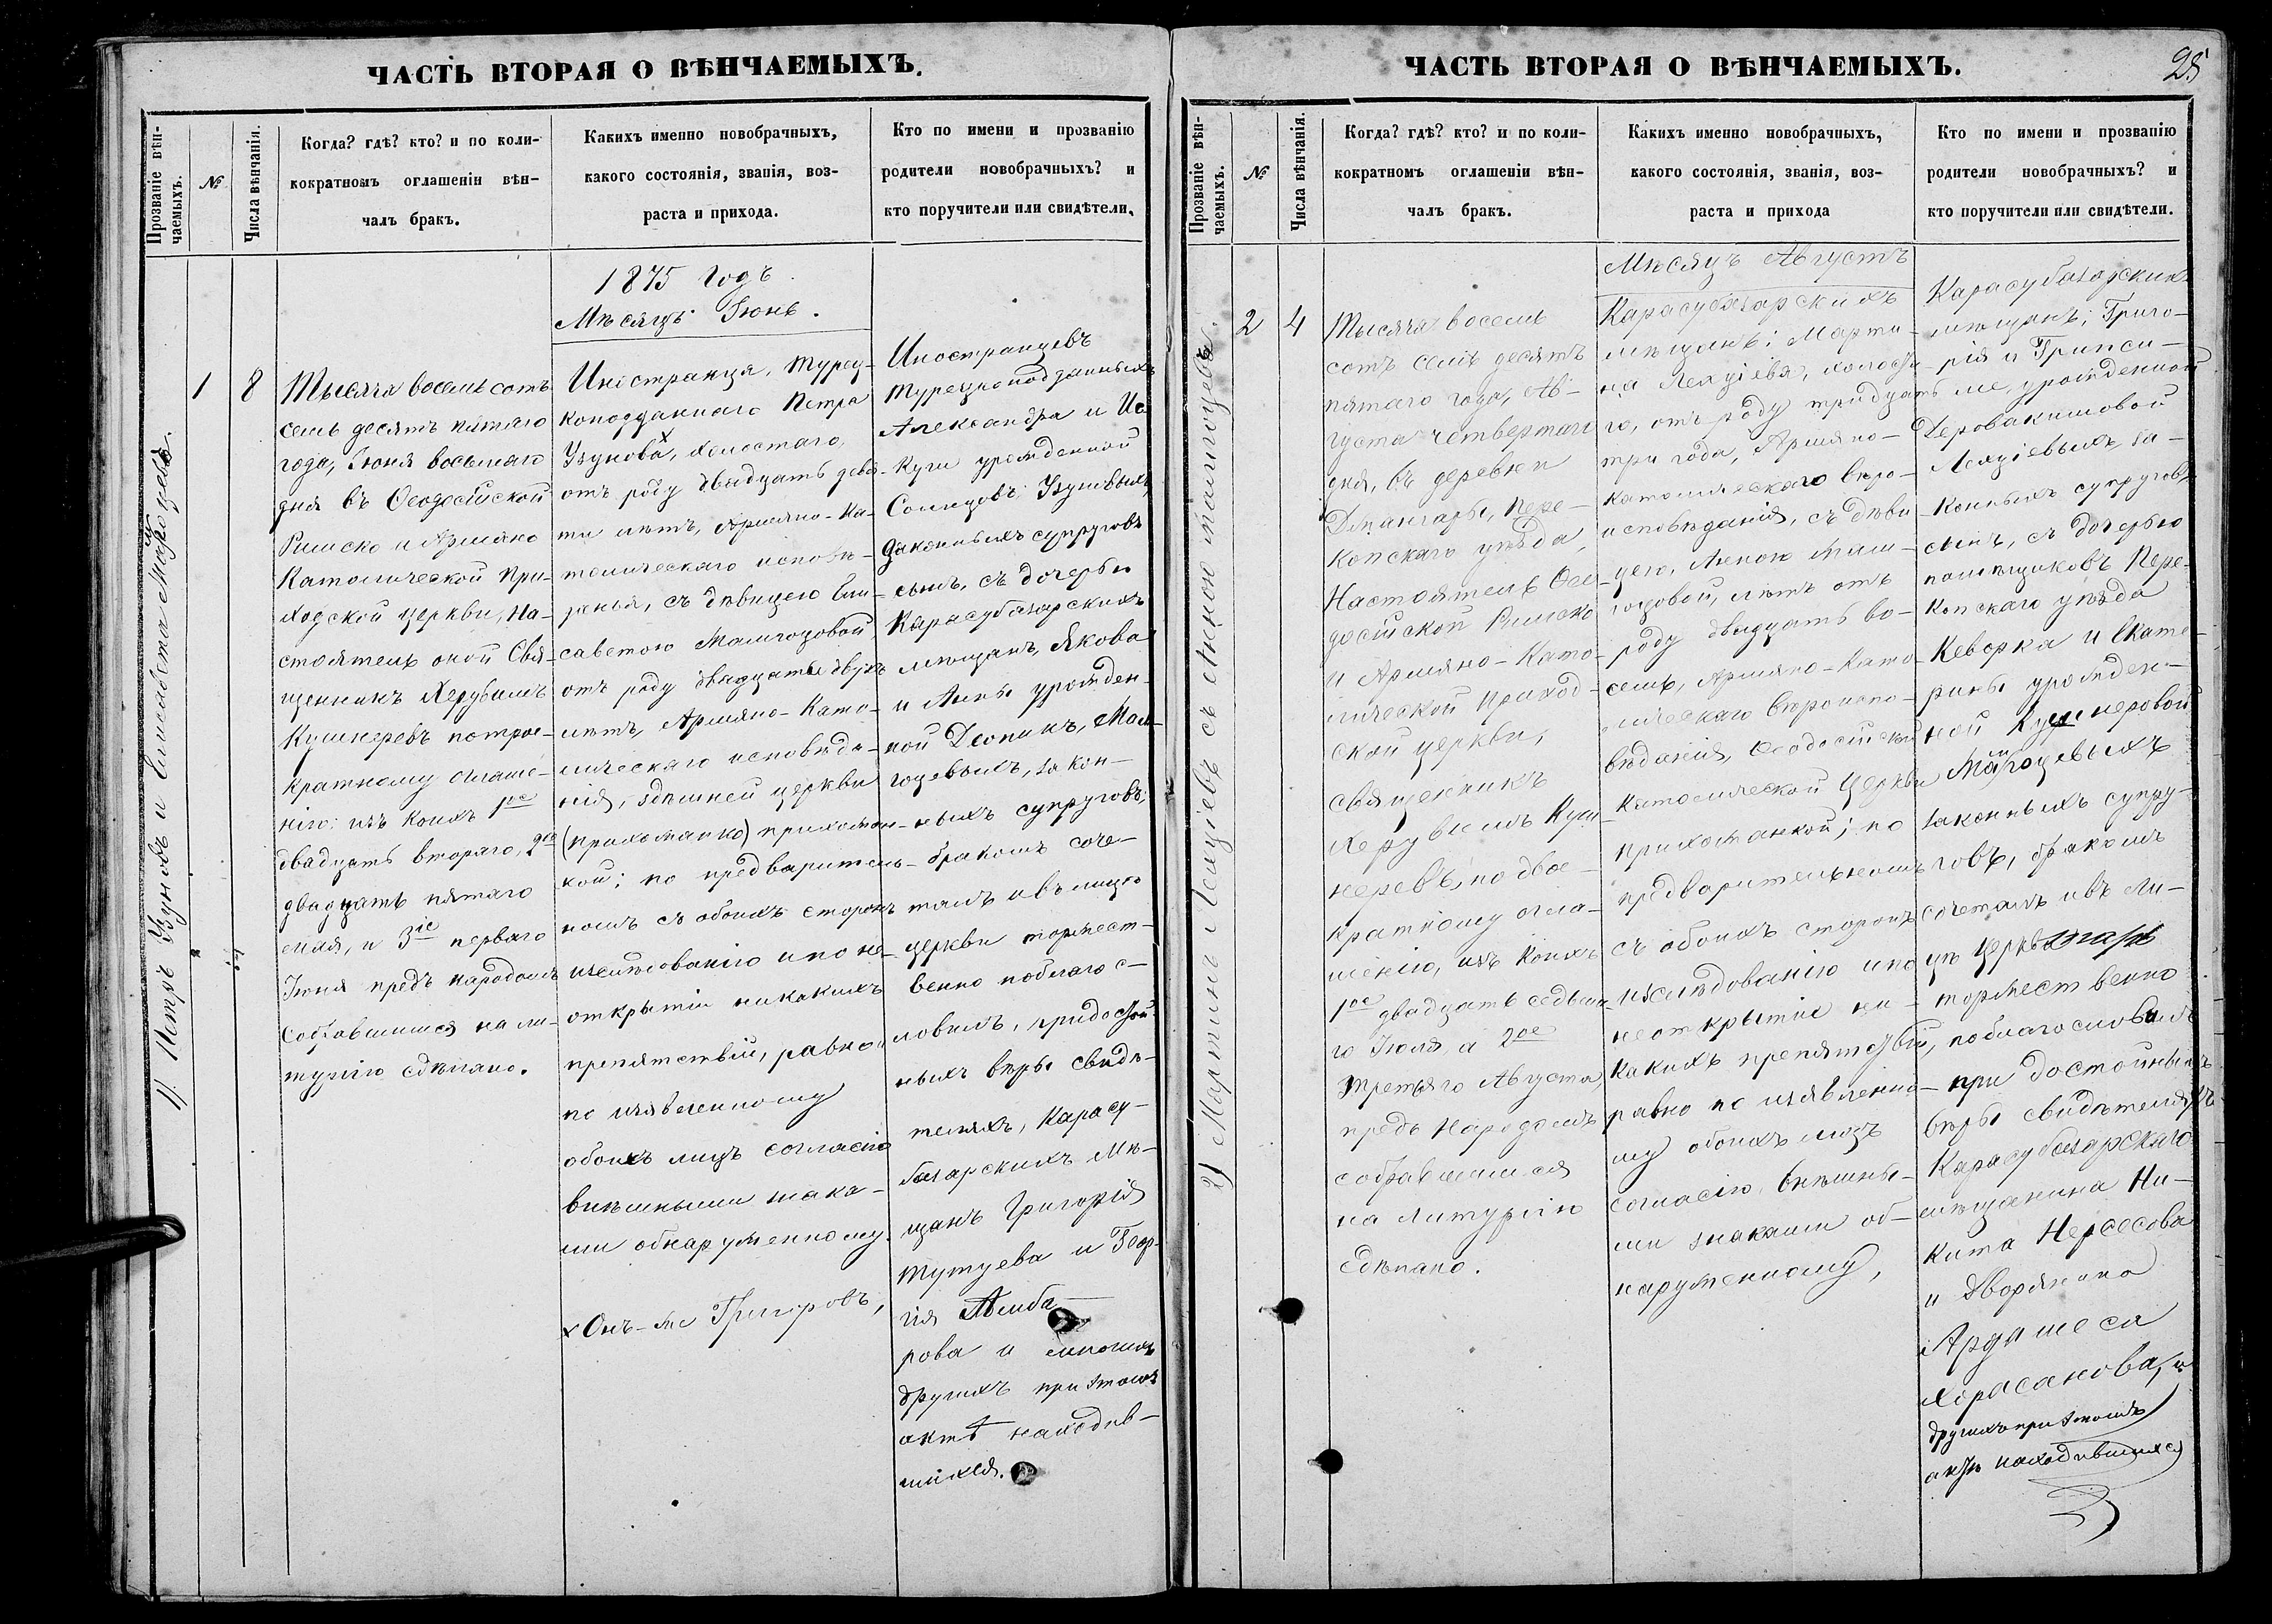 ЧАСТЬ ВТОРАЯ О ВѢНЧАЕМЫХЪ.
Прозваніе вѣн-
чаемыхъ.
№
Числа вѣнчанія.
Когда? гдѣ? кто? и по коли-
кократномъ оглашеніи вѣн-
чалъ бракъ.
Какихъ именно новобрачныхъ,
какого состоянія, званія, воз-
раста и прихода.
Кто по имени и прозванію
родители новобрачныхъ? и
кто поручители или свидѣтели.
1) Петръ Узуновъ и Елисавета
1
8
Тысяча восемь сотъ
семь десятъ пятаго
года, Іюня восьмаго
дня въ Ѳеодосійской
Римско и Армяно
Католической При-
ходской церкви, На-
стоятель оной Свя-
щенникъ Херубимъ
Кушнеревъ по трое-
кратному оглаше-
нію: изъ коихъ 1ое
двадцать втораго, 2ое
двадцать пятаго
мая, и 3іе перваго
Іюня предъ народомъ
собравшимся на ли-
тургію сдѣлано.
1875 Годъ.
Мѣсяцъ Іюнь.
Иностранца, Турец-
коподданнаго Петра
Узунова х, холостаго,
отъ роду двадцать девя-
ти лѣтъ, Армяно-Ка-
толическаго исповѣ-
данья, съ дѣвицею Ели-
саветою Малгоцовой
отъ роду двадцать двухъ
лѣтъ, Армяно-Като-
лическаго исповѣда-
нія, здѣшней церкви
(прихожанко) прихожан-
кой; по предваритель-
номъ съ обоихъ сторонъ
изслѣдованію и по не-
открытіи никакихъ
препятствій, равно
по изъявленному
обоихъ лицъ согласію
внѣшными знака-
ми обнаруженному.
х Онъ-же Григоровъ,
Иностранцевъ
Турецкоподданныхъ
Александра и
Куги урожденной
Узуновыхъ,
Законныхъ супруговъ
сынъ, съ дочерью
Карасубазарскихъ
мѣщанъ, Якова
и Анны урожден-
ной Деопикъ, Мал-
гоцевыхъ, закон-
ныхъ супруговъ;
бракомъ соче-
талъ и въ лицѣ
церкви торжест-
венно поблагос-
ловилъ, при достой-
ныхъ вѣры свидѣ-
теляхъ, Карасу-
базарскихъ Мѣ-
щанъ Григорія
Тутуева и Геор-
гія Амба-
рова и многихъ
другихъ при этомъ
актѣ находив-
шихся.
ЧАСТЬ ВТОРАЯ О ВѢНЧАЕМЫХЪ.
25
Прозваніе вѣн-
чаемыхъ.
№
Числа вѣнчанія.
Когда? гдѣ? кто? и по коли-
кократномъ оглашеніи вѣн-
чалъ бракъ.
Какихъ именно новобрачныхъ,
какого состоянія, званія, воз-
раста и прихода
Кто по имени и прозванію
родители новобрачныхъ? и
кто поручители или свидѣтели.
2) Мартинъ Лехціевъ съ Анною
2
4
Тысяча восемь
сотъ семь десятъ
пятаго года, Ав-
густа четвертаго
дня, въ деревни
Джангары, Пере-
копскаго уѣзда,
Настоятель Ѳео-
досійской Римско
и Армяно-Като-
лической Приход-
ской церкви,
священникъ
Херувимъ Куш-
неревъ, по двое-
кратному огла-
шенію, изъ коихъ
1ое двадцать седьма-
го Іюля, а 2ое
третьяго Августа,
предъ народомъ
собравшимся
на литургію
сдѣлано.
Мѣсяцъ Августъ
Карасубазарскихъ
мѣщанъ: Марти-
на Лехціева, холоста-
го, отъ роду тридцать
три года, Армяно-
католическаго вѣро-
исповѣданія, съ дѣви-
цею, Анною Мал-
гоцовой, лѣтъ отъ
роду двадцать во-
семь, Армяно-Като-
лическаго вѣроиспо-
вѣданія, Ѳеодосійской
Католической церкви
прихожанкой; по
предварительномъ
съ обоихъ сторонъ
изслѣдованію и по
неоткрытіе ни-
какихъ препятствій,
равно по изъявленно-
му обоихъ лицъ
согласію внѣшны-
ми знаками об-
наруженному,
Карасубазарскихъ
мѣщанъ: Григо-
рія и Грипси-
ме, урожденной
Деровакимовой
Лехціевыхъ, за-
конныхъ супруговъ
сынъ, съ дочерью
помѣщиковъ Пере-
копскаго уѣзда
Кеворка и Екате-
рины урожден-
ной Кушнеровой
Малгоцевыхъ
законныхъ супру-
говъ, бракомъ
сочеталъ и въ ли-
цѣ церкви
торжественно
поблагословилъ
при достойныхъ
вѣры свидѣтеляхъ
Карасубазарскаго
мѣщанина Ни-
кита Нерсесова
и Дворянина
Ардашеса
Хорасанова, и
другихъ при этомъ
актѣ находившихся